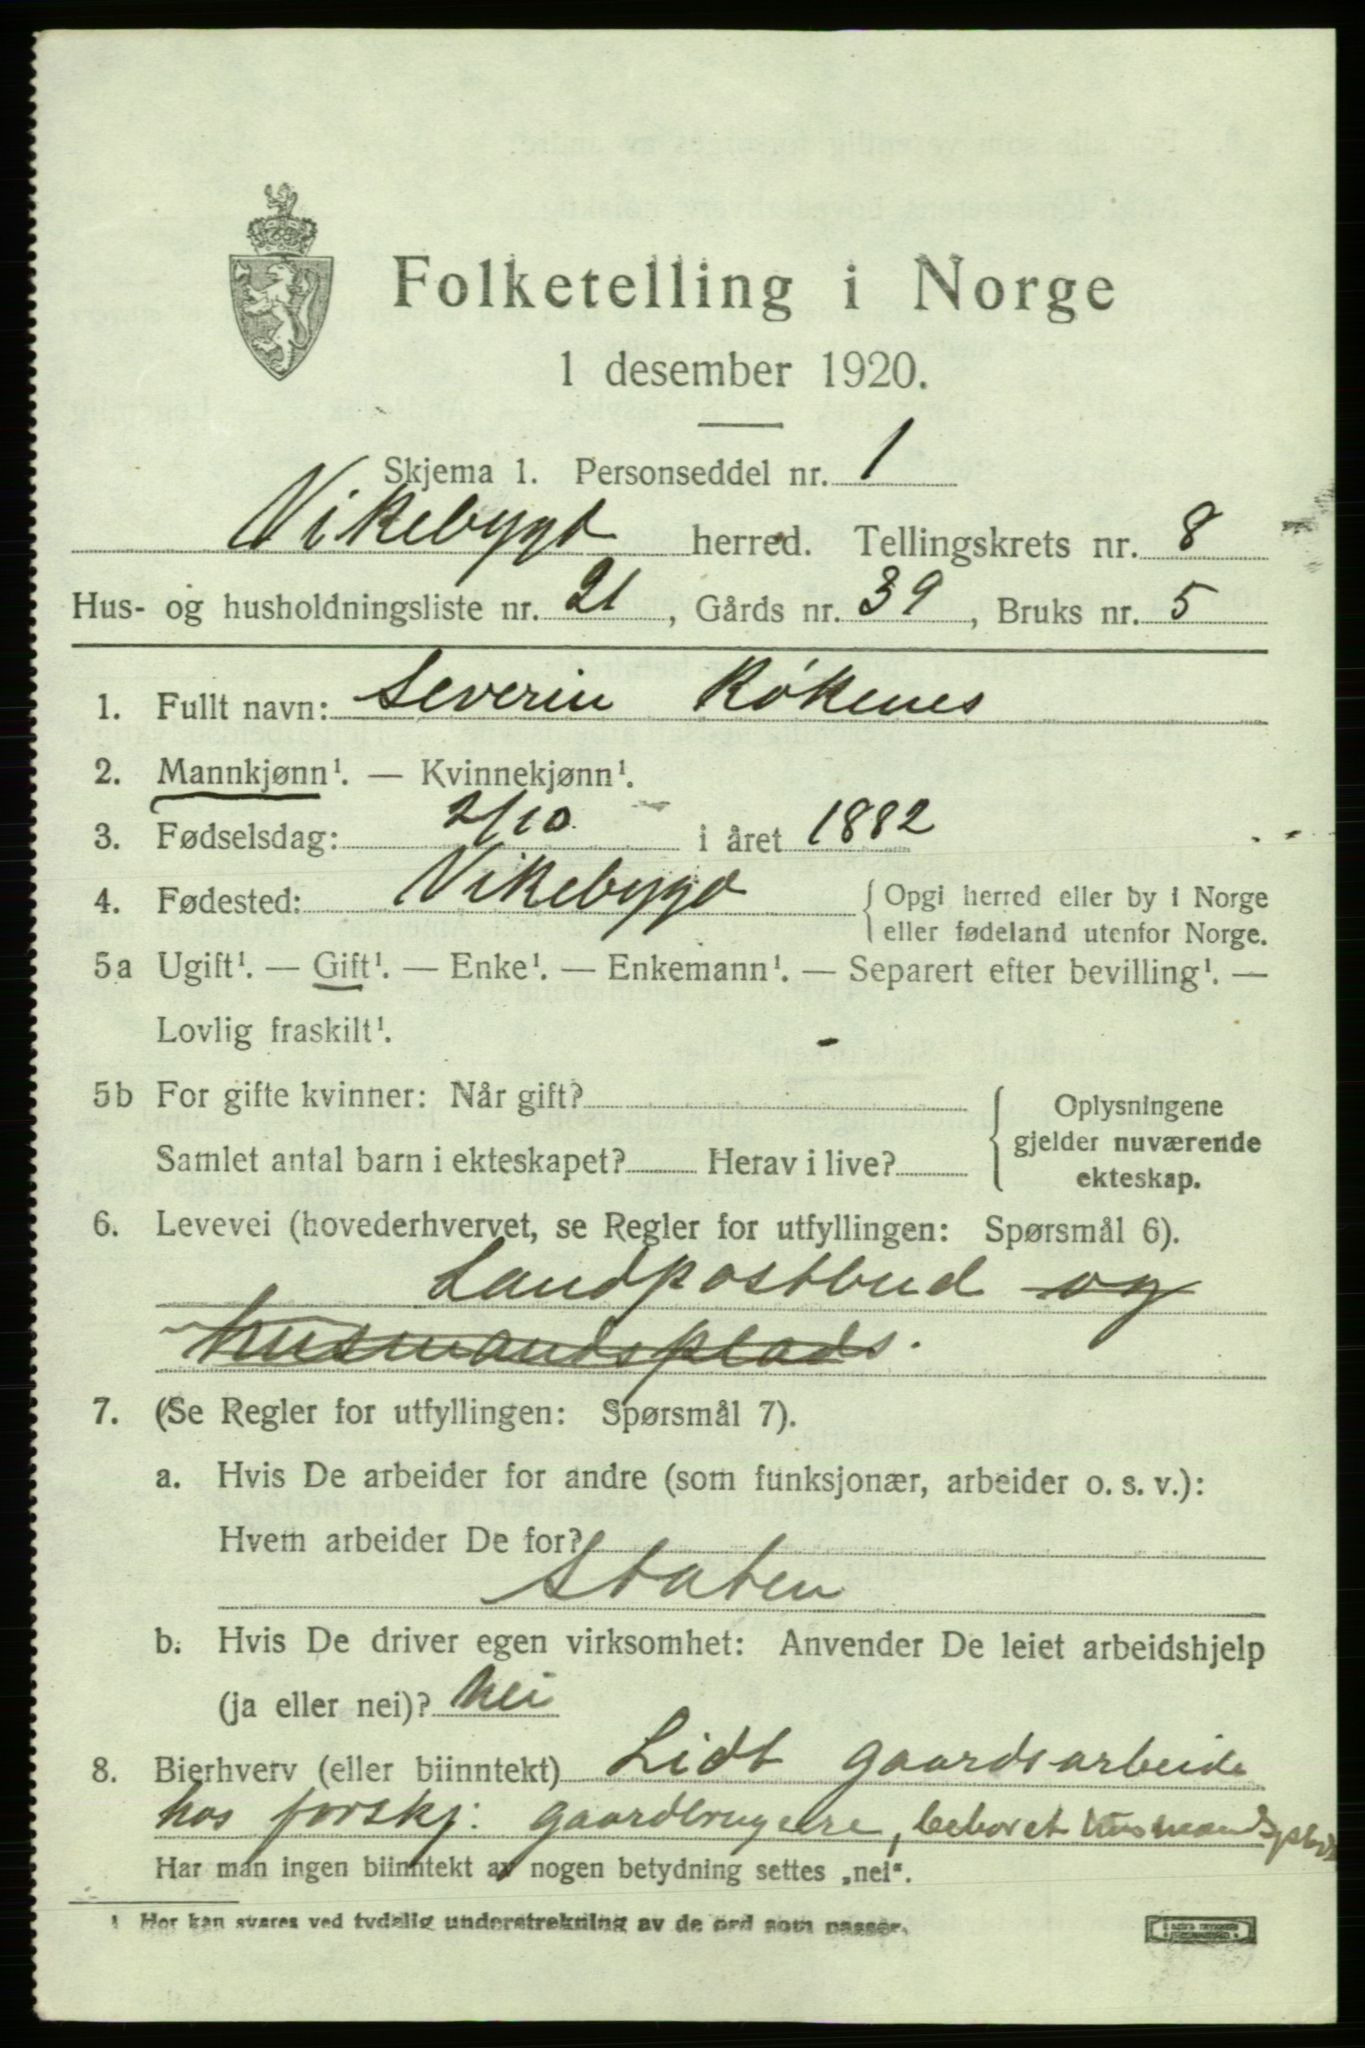 Folketelling i Norge
1 desember 1920.
Skjema 1. Personseddel nr. 1
Vikebygd herred. Tellingskrets nr. 8
Hus- og husholdningsliste nr. 21, Gårds nr. 39, Bruks nr. 5
1. Fullt navn: Severin Rökenes
2. Mannkjønn¹. — Kvinnekjønn¹.
3. Fødselsdag: 2/10 i året 1882
4. Fødested: Vikebygd { Opgi herred eller by i Norge
eller fødeland utenfor Norge.
5a Ugift¹. — Gift¹. — Enke¹. — Enkemann¹. — Separert efter bevilling¹. —
Lovlig fraskilt¹.
5b For gifte kvinner: Når gift?
Samlet antal barn i ekteskapet? Herav i live?
{ Oplysningene
gjelder nuværende
ekteskap.
6. Levevei (hovederhvervet, se Regler for utfyllingen: Spørsmål 6).
Landpostbud og
husmandsplads.
7. (Se Regler for utfyllingen: Spørsmål 7).
a. Hvis De arbeider for andre (som funksjonær, arbeider o. s. v.):
Hvem arbeider De for?
Staten
b. Hvis De driver egen virksomhet: Anvender De leiet arbeidshjelp
(ja eller nei)? Nei
8. Bierhverv (eller biinntekt) Lidt gaardsarbeide
hos forskj. gaardbrugere, beboret husmandsplads
Har man ingen biinntekt av nogen betydning settes „nei“.
¹ Her kan svares ved tydelig understrekning av de ord som passer.